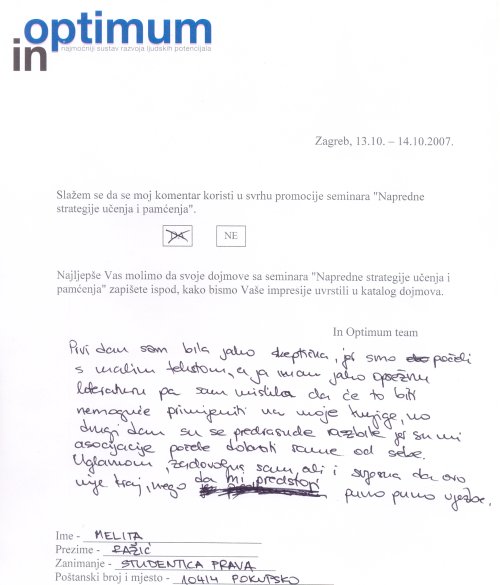 in optimum
najmoćniji sustav razvoja ljudskih potencijala
Zagreb, 13.10. – 14.10.2007.
Slažem se da se moj komentar koristi u svrhu promocije seminara "Napredne
strategije učenja i pamćenja".
DA NE
Najljepše Vas molimo da svoje dojmove sa seminara "Napredne strategije učenja i
pamćenja" zapišete ispod, kako bismo Vaše impresije uvrstili u katalog dojmova.
In Optimum team
Prvi dan sam bila jako skeptična, jer smo počeli
s malim tekstom, a ja imam jako opsežnu
literaturu pa sam mislila da će to biti
nemoguće primijeniti na moje knjige, no
drugi dan su se predrasude razbile jer su mi
asocijacije počele dolaziti same od sebe.
Uglavnom, zadovoljna sam, ali i svjesna da ovo
nije kraj, nego da mi predstoji
puno puno vježbe.
Ime - MELITA
Prezime - RAŽIĆ
Zanimanje - STUDENTICA PRAVA
Poštanski broj i mjesto - 10414 POKUPSKO